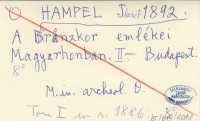 HAMPEL József 1892.
A Bronzkor emlékei
Magyarhonban. II – Budapest.
8°
M.in. archeol. O.
Tom I n r. 1886. 8°